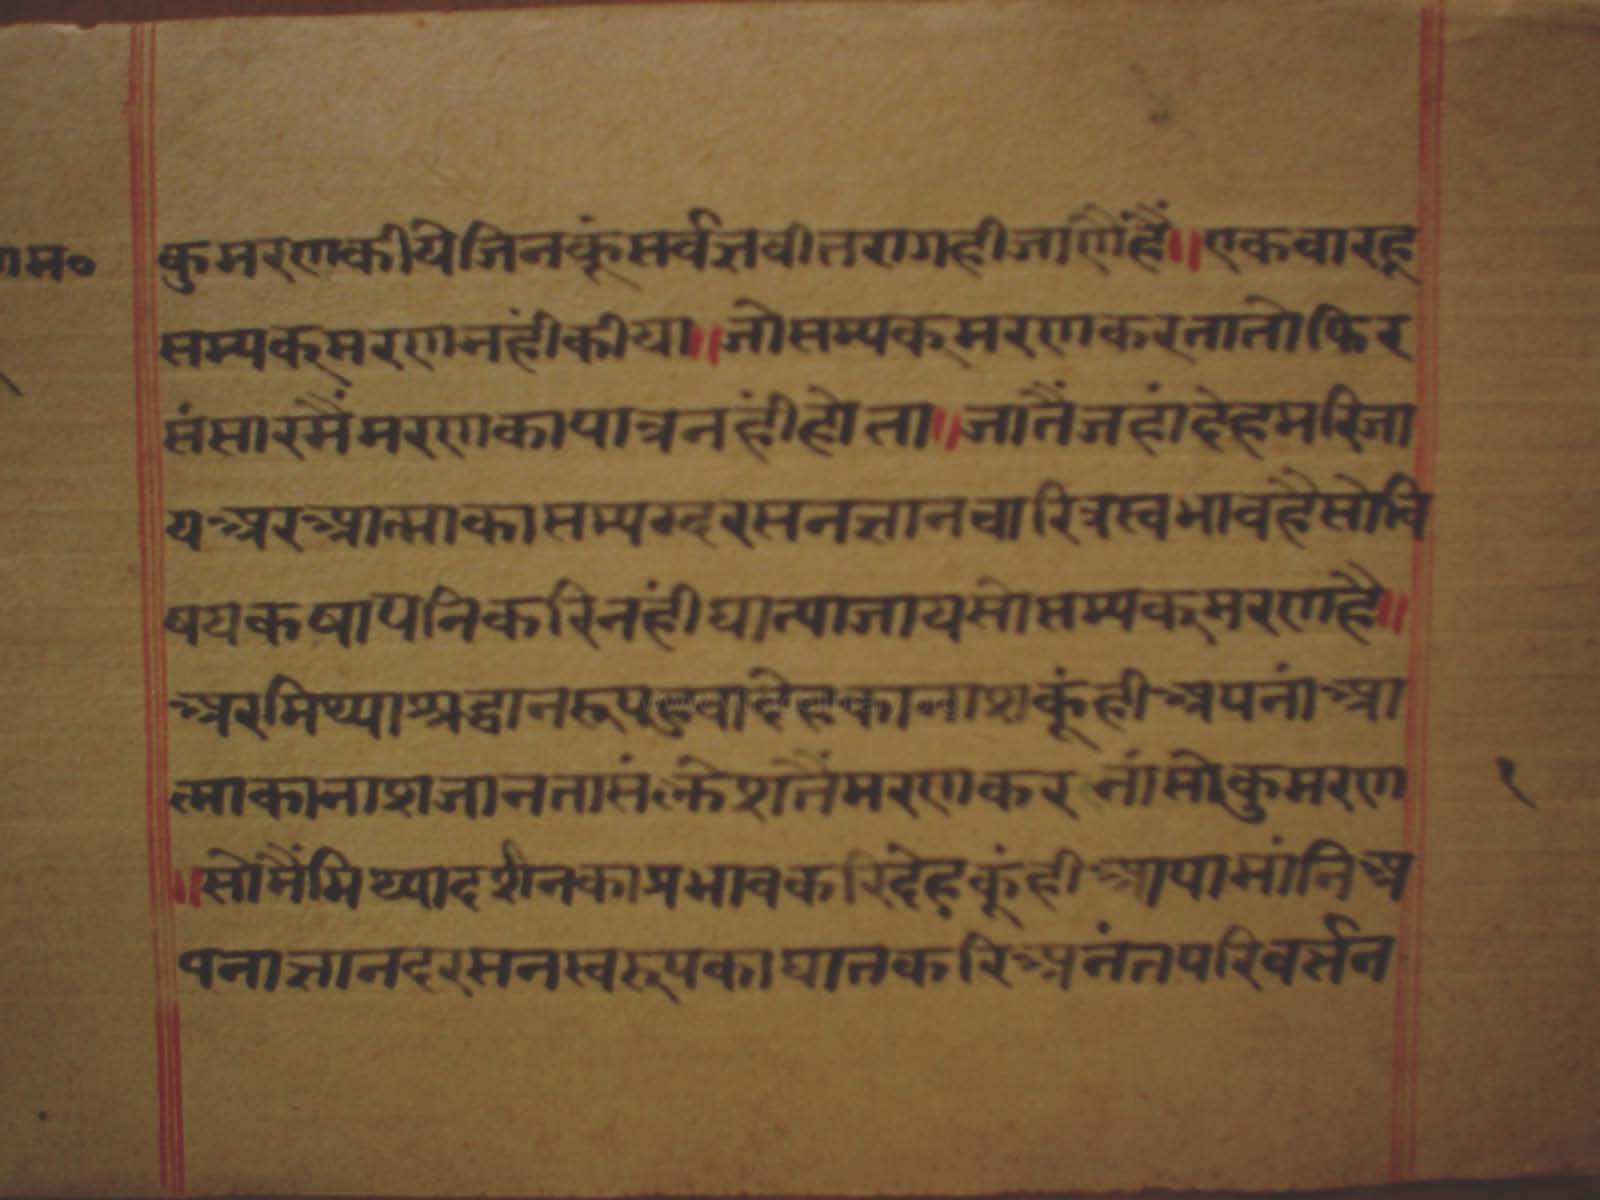 कुमरणकीयेजिनकूंसर्वज्ञवीतरागहीजाणैंहैं॥एकवारहू
सम्यक्मरणनहींकीया॥जोसम्यक्मरणकरतातोफिर
संसारमैंमरणकापात्रनहींहोता॥जातैंजहांदेहमरिजा
यअरआत्माकासम्यग्दरसनज्ञानचारित्रस्वभावहैसोवि
षयकषायनिकरिनहींघात्याजायसोसम्यक्मरणहै॥
अरमिथ्याश्रद्धानरूपहुवादेहकानाशकूंहीअपनांआ
त्माकानाशजानतासंक्लेशतैंमरणकरनांसोकुमरण
॥सोमैंमिथ्यादर्शनकाप्रभावकरिदेहकूंहीआपामांनिअ
पनाज्ञानदरसनस्वरूपकाघातकरिअनंतपरिवर्त्तन
१